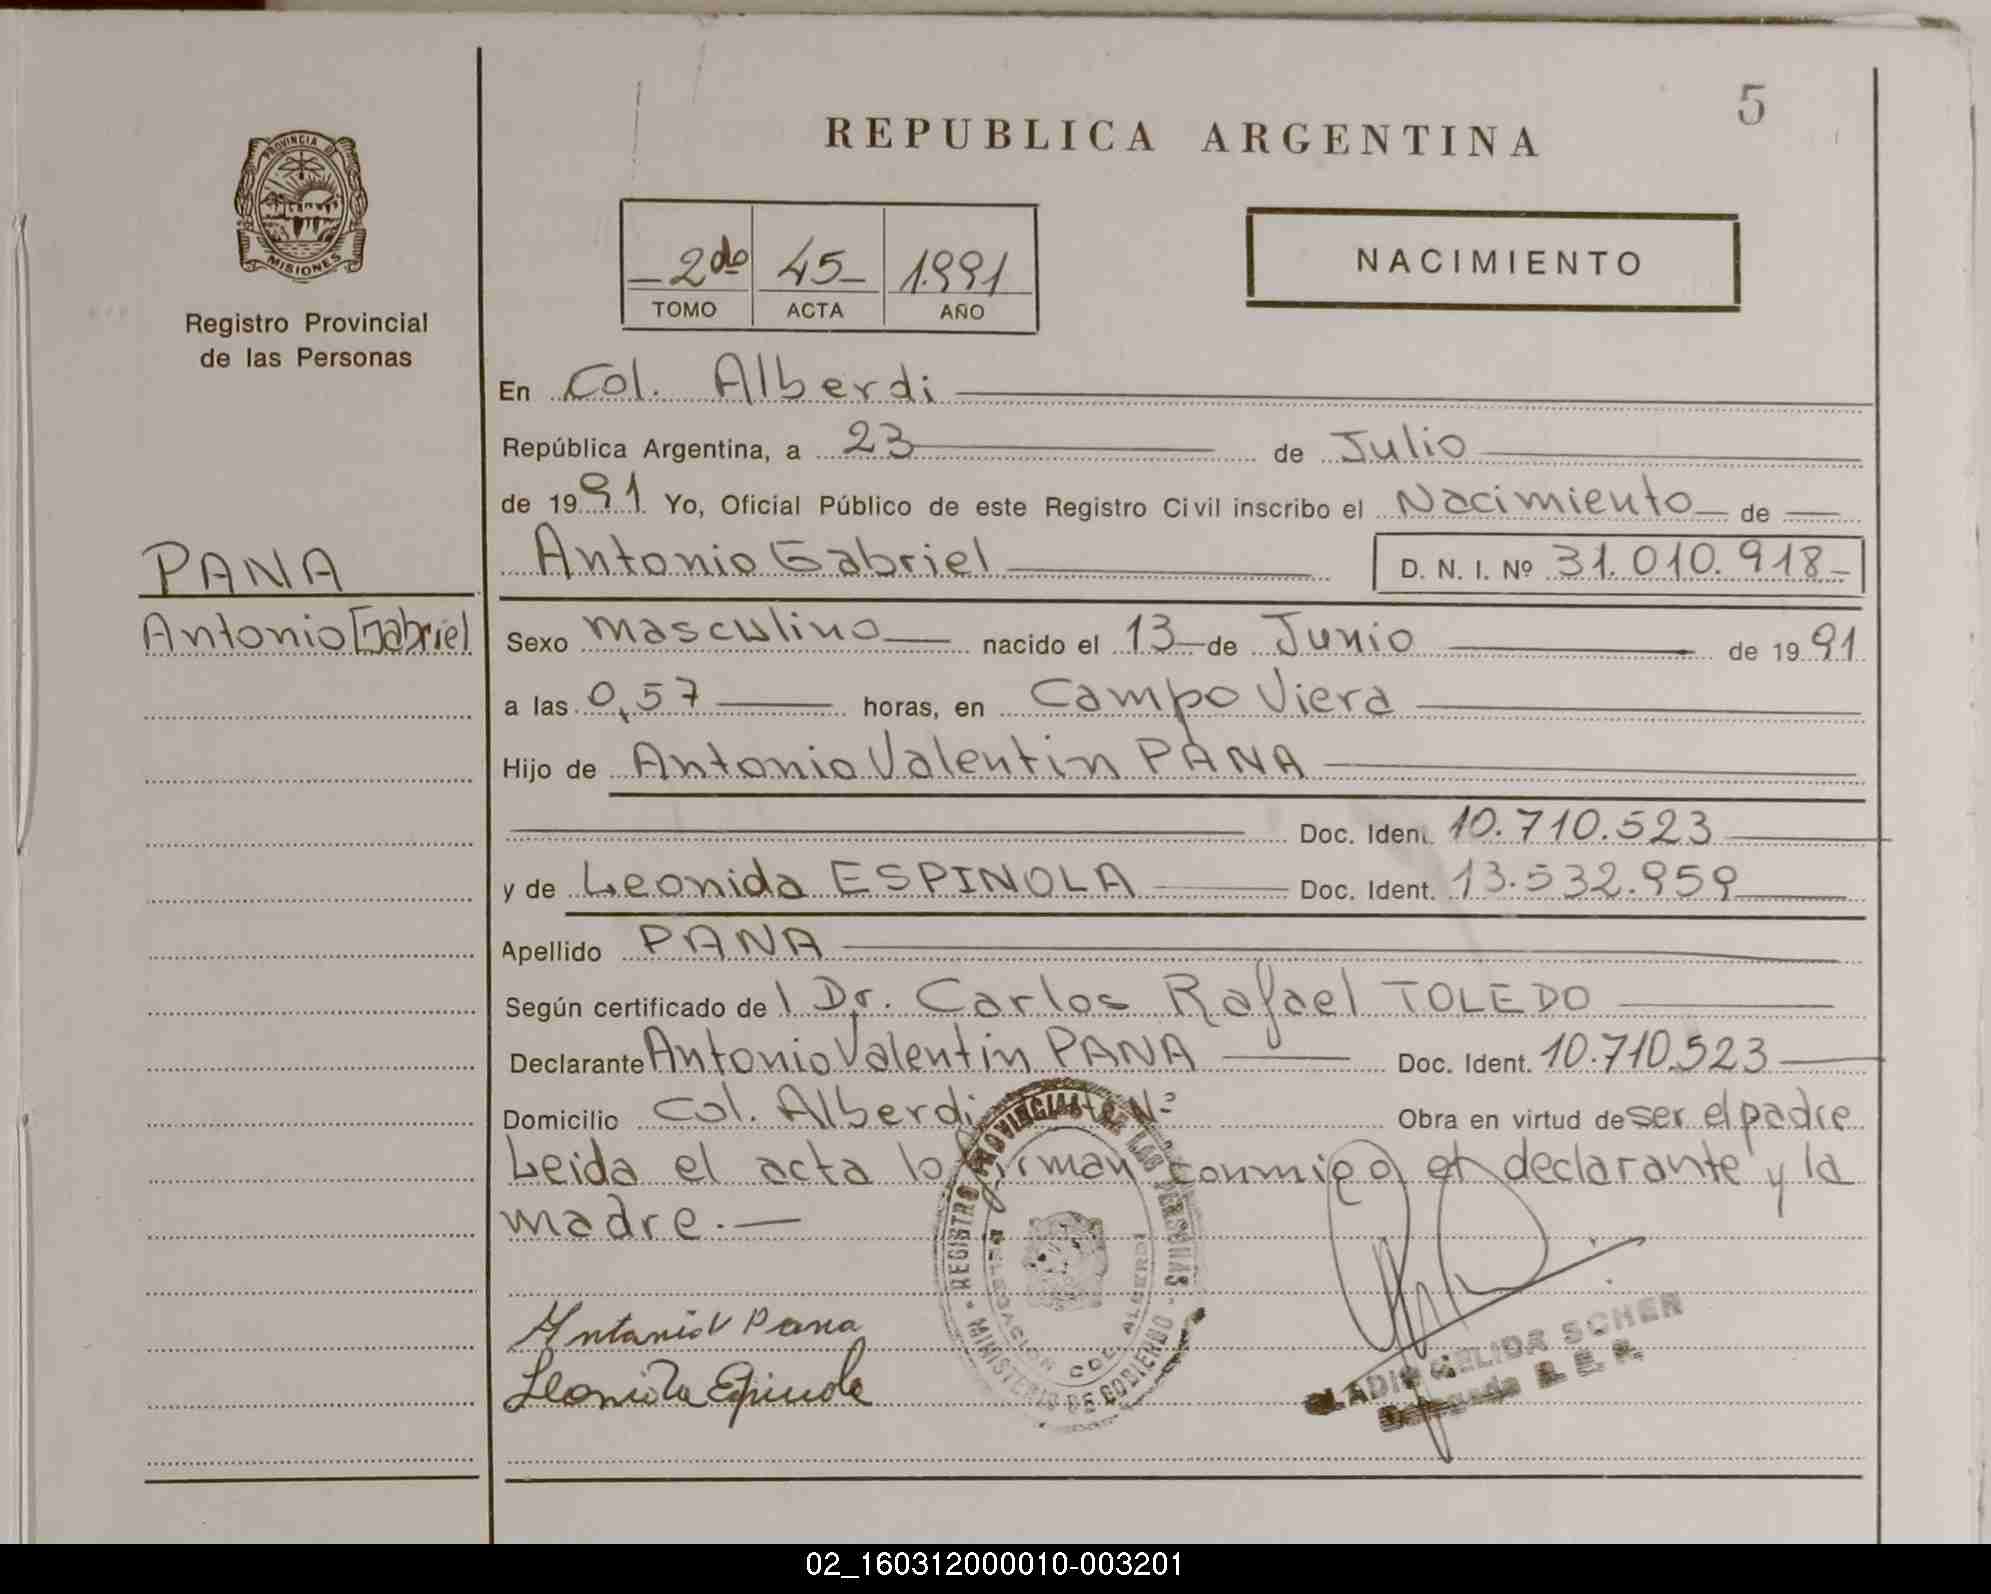 5
REPUBLICA ARGENTINA
PROVINCIA DE
MISIONES
Registro Provincial
de las Personas
2do 45 1991
TOMO ACTA AÑO
NACIMIENTO
En Col. Alberdi
República Argentina, a 23 de Julio
de 1991 Yo, Oficial Público de este Registro Civil inscribo el Nacimiento de
Antonio Gabriel D. N. I. Nº 31.010.918
PANA
Antonio Gabriel
Sexo masculino nacido el 13 de Junio de 1991
a las 0,57 horas, en Campo Viera
Hijo de Antonio Valentin PANA
Doc. Ident. 10.710.523
y de Leonida ESPINOLA Doc. Ident. 13.532.959
Apellido PANA
Según certificado de l Dr. Carlos Rafael TOLEDO
Declarante Antonio Valentin PANA Doc. Ident. 10.710.523
Domicilio Col. Alberdi Nº Obra en virtud de ser el padre
Leida el acta lo firman conmigo el declarante y la
madre.
REGISTRO PROVINCIAL DE LAS PERSONAS
DELEGACION COL. ALBERDI
MINISTERIO DE GOBIERNO
Antonio V Pana
Leonida Espinola
GLADIS NELIDA SCHER
Delegada
02_160312000010-003201